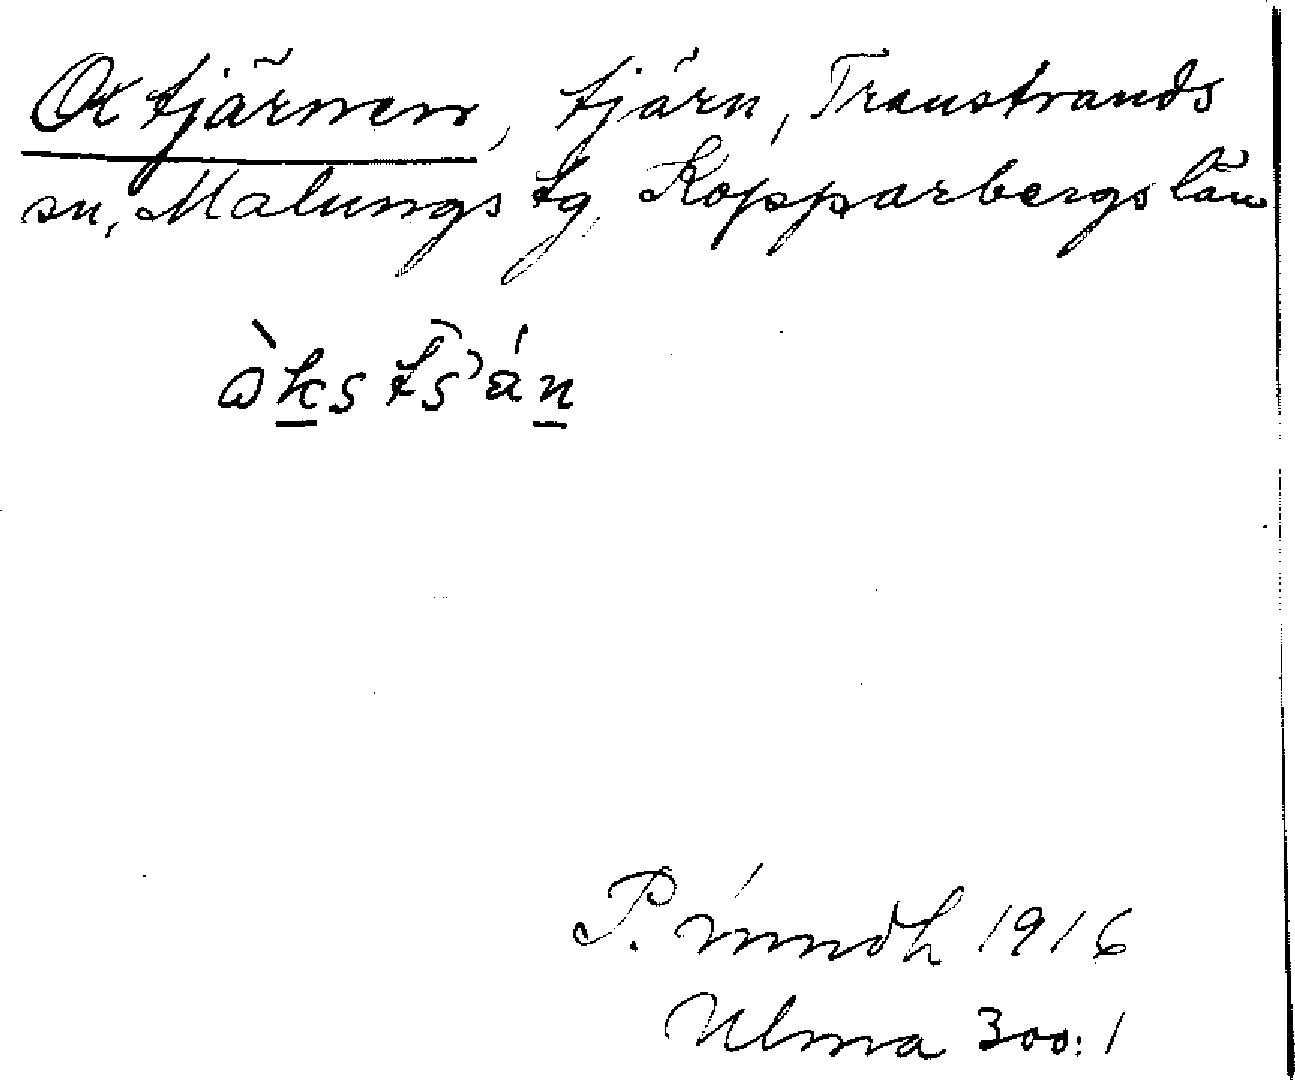 Oxtjärnen, tjärn, Transtrands
sn, Malungs tg, Kopparbergs län
òks tš'án
P. 1916
Ulma 300:1